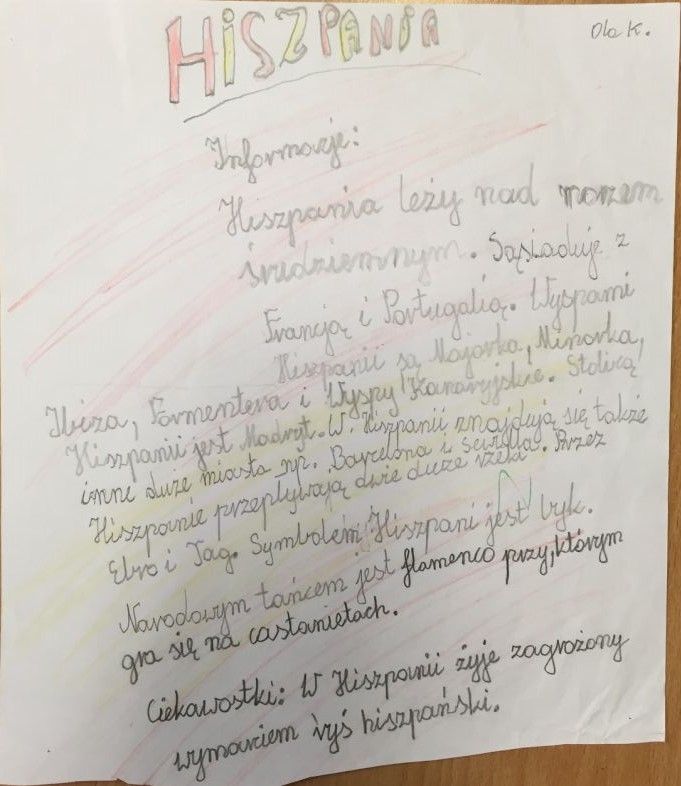 HISZPANIA
Ola K.
Informacje:
Hiszpania leży nad morzem
śródziemnym. Sąsiaduje z
Francją i Portugalią. Wyspami
Hiszpanii są Majorka, Minorka,
Ibiza, Formentera i Wyspy Kanaryjskie. Stolicą
Hiszpanii jest Madryt. W Hiszpanii znajdują się także
inne duże miasta np. Barcelona i Sewilla. Przez
Hiszpanie przepływają dwie duże rzeki.
Ebro i Tag. Symbolem Hiszpani jest byk.
Narodowym tańcem jest flamenco przy, którym
gra się na castanietach.
Ciekawostki: W Hiszpanii żyje zagrożony
wymarciem ryś hiszpański.